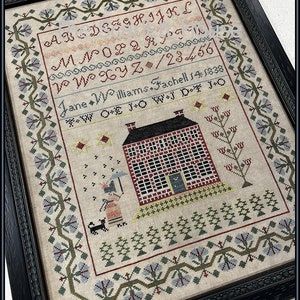 ABCDEFGHIJKL
MNOPQRSTU
VWXYZ 123456
Jane Williams 14 1838
TW OE JO WJ DT JO